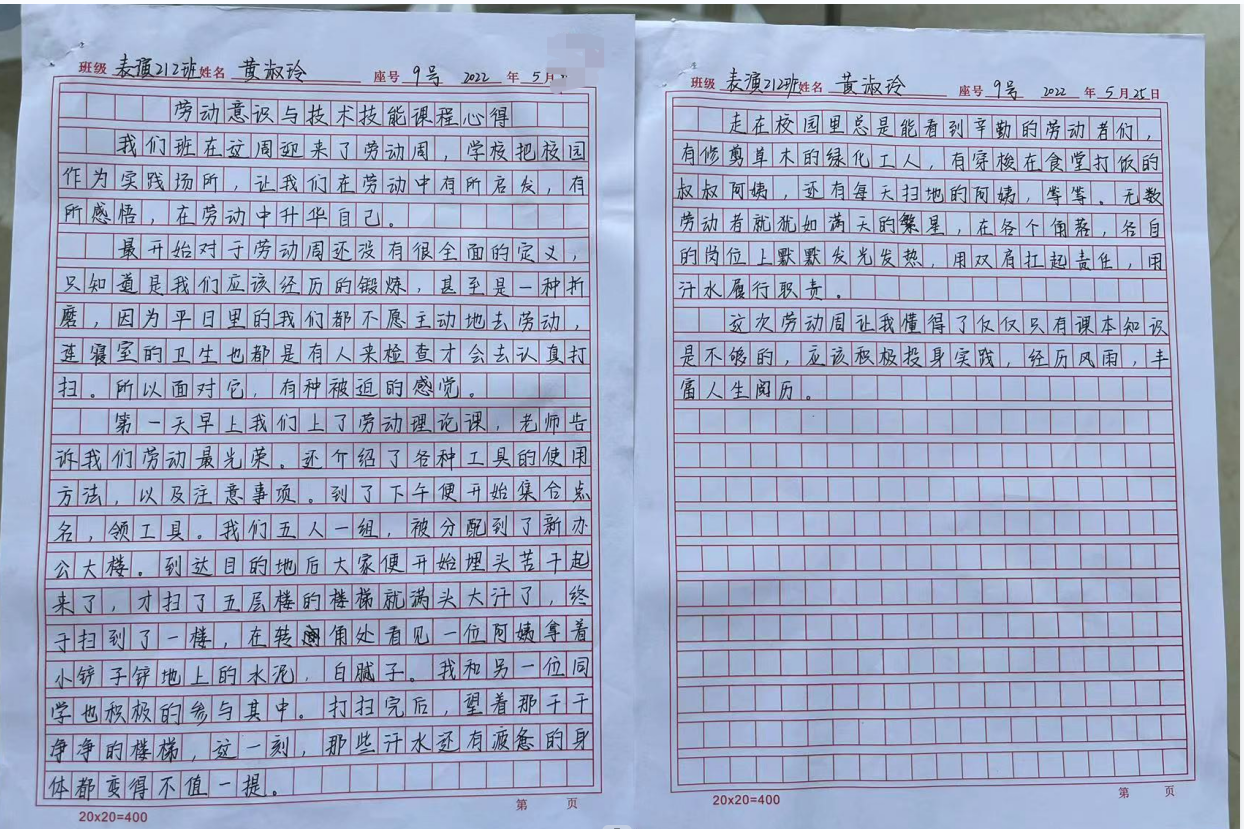 班级 表演212班 姓名 黄淑玲 座号 9号 2022 年 5 月
劳动意识与技术技能课程心得
我们班在这周迎来了劳动周，学校把校园
作为实践场所，让我们在劳动中有所启发，有
所感悟，在劳动中升华自己。
最开始对于劳动周还没有很全面的定义，
只知道是我们应该经历的锻炼，甚至是一种折
磨，因为平日里的我们都不愿主动地去劳动，
连寝室的卫生也都是有人来检查才会去认真打
扫。所以面对它，有种被迫的感觉。
第一天早上我们上了劳动理论课，老师告
诉我们劳动最光荣。还介绍了各种工具的使用
方法，以及注意事项。到了下午便开始集合点
名，领工具。我们五人一组，被分配到了新办
公大楼。到达目的地后大家便开始埋头苦干起
来了，才扫了五层楼的楼梯就满头大汗了，终
于扫到了一楼，在转角处看见一位阿姨拿着
小铲子铲地上的水泥，白腻子。我和另一位同
学也积极的参与其中。打扫完后，望着那干干
净净的楼梯，这一刻，那些汗水还有疲惫的身
体都变得不值一提。
第 页
20x20=400
班级 表演212班 姓名 黄淑玲 座号 9号 2022 年 5 月 25 日
走在校园里总是能看到辛勤的劳动者们，
有修剪草木的绿化工人，有穿梭在食堂打饭的
叔叔阿姨，还有每天扫地的阿姨，等等。无数
劳动者就犹如满天的繁星，在各个角落，各自
的岗位上默默发光发热，用双肩扛起责任，用
汗水履行职责。
这次劳动周让我懂得了仅仅只有课本知识
是不够的，应该积极投身实践，经历风雨，丰
富人生阅历。
第 页
20x20=400